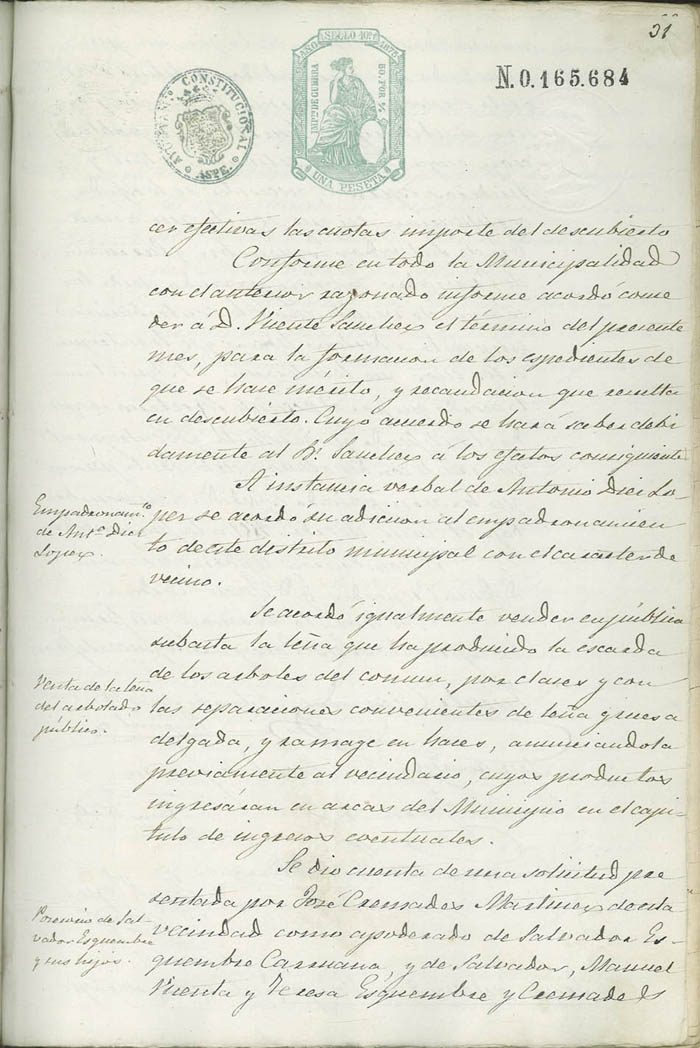 51
AYUNTAMTO CONSTITUCIONAL
ASPE.
AÑO SELLO 10º 1876
IMPTO DE GUERRA
50 POR %
UNA PESETA
N.0.165.684
cer efectivas las cuotas importe del descubierto
Conforme en todo la Municipalidad
con el anterior razonado informe acordó conce
der á D. Vicente Sanchez el término del presente
mes, para la formacion de los espedientes de
que se hace mérito, y recaudacion que resulta
en descubierto. Cuyo acuerdo se hará saber debi
damente al Sr. Sanchez á los efectos consiguientes
Empadronamto
de Anto Diez
Lopez.
A instancia verbal de Antonio Diez Lo-
pez se acordó su adicion al empadronamien
to de este distrito municipal con el caracter de
vecino.
Se acordó igualmente vender en pública
subasta la leña que ha producido la escarda
Venta de la leña
del arbolado
público.
de los arboles del comun, por clases y con
las separaciones convenientes de leña gruesa
delgada, y ramage en haces, anunciandola
previamente al vecindario, cuyos productos
ingresáran en arcas del Municipio en el capi-
tulo de ingresos eventuales.
Se dio cuenta de una solicitud pre
de Sal-
vador Esquembre
y sus hijos.
sentada por José Cremades Martinez de esta
vecindad como apoderado de Salvador Es-
quembre Carmana, y de Salvador, Manuel
Vicenta y Teresa Esquembre y Cremades